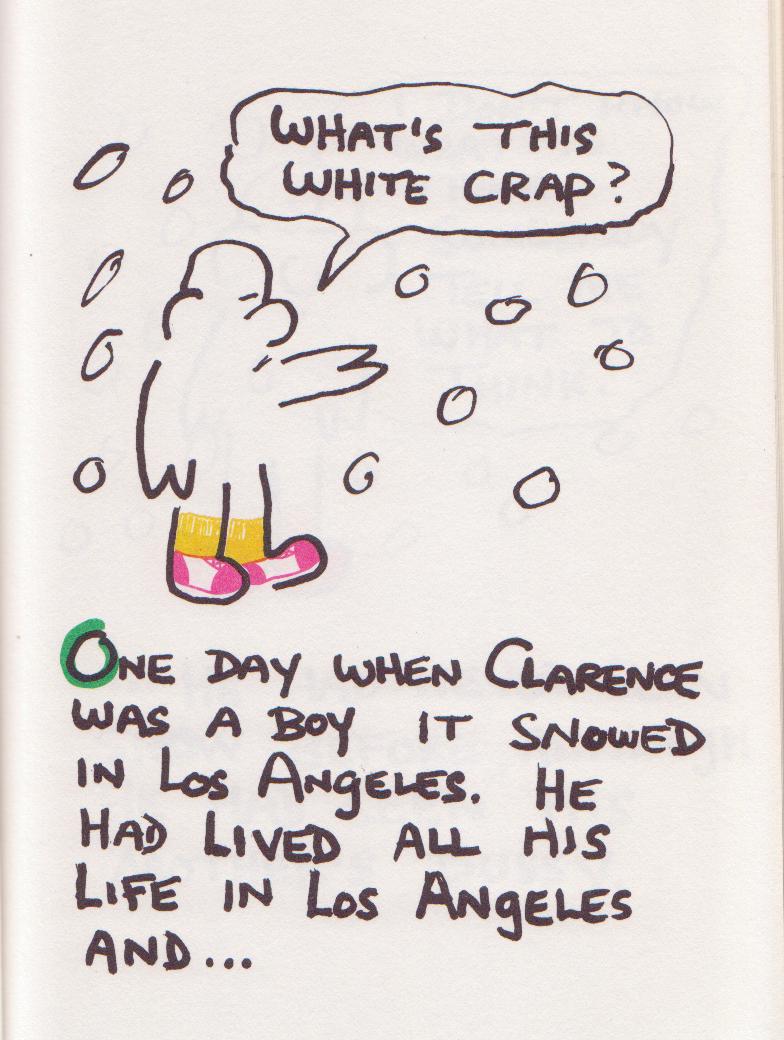 WHAT'S THIS
WHITE CRAP?
ONE DAY WHEN CLARENCE
WAS A BOY IT SNOWED
IN LOS ANGELES. HE
HAD LIVED ALL HIS
LIFE IN LOS ANGELES
AND...